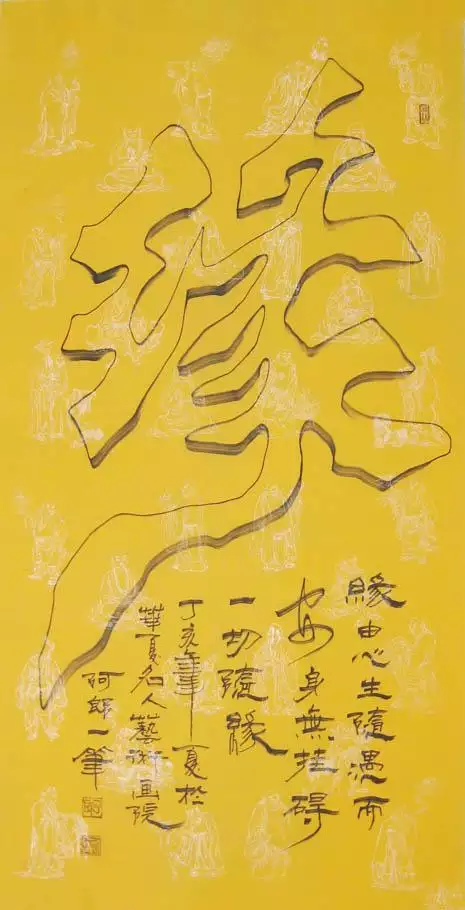 缘
緣由心生隨遇而
安身無挂碍
一切隨緣
丁亥年夏於
華夏名人藝術画院
阿郎一筆